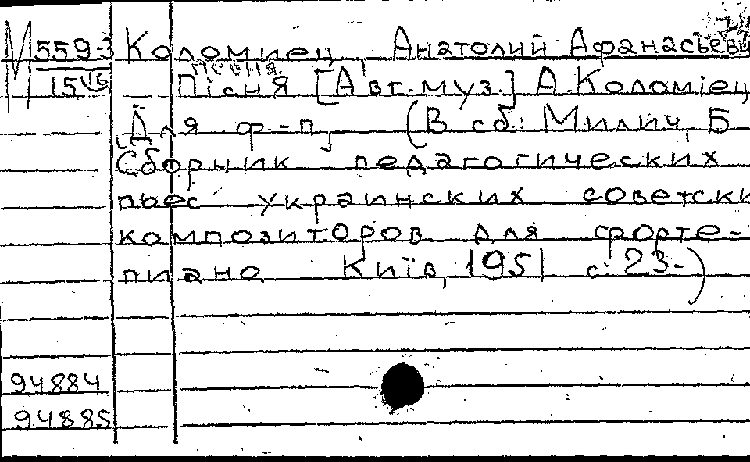 М 5593 Коломиец, Анатолий Афанасьеви
15 Пісня [Авт. муз.] А. Коломіец
Для ф-п, (В сб: Милич, Б
Сборник педагогических
пьес украинских советски
композиторов для форте-
пиано Київ, 1951 с. 23-)
94884
94885